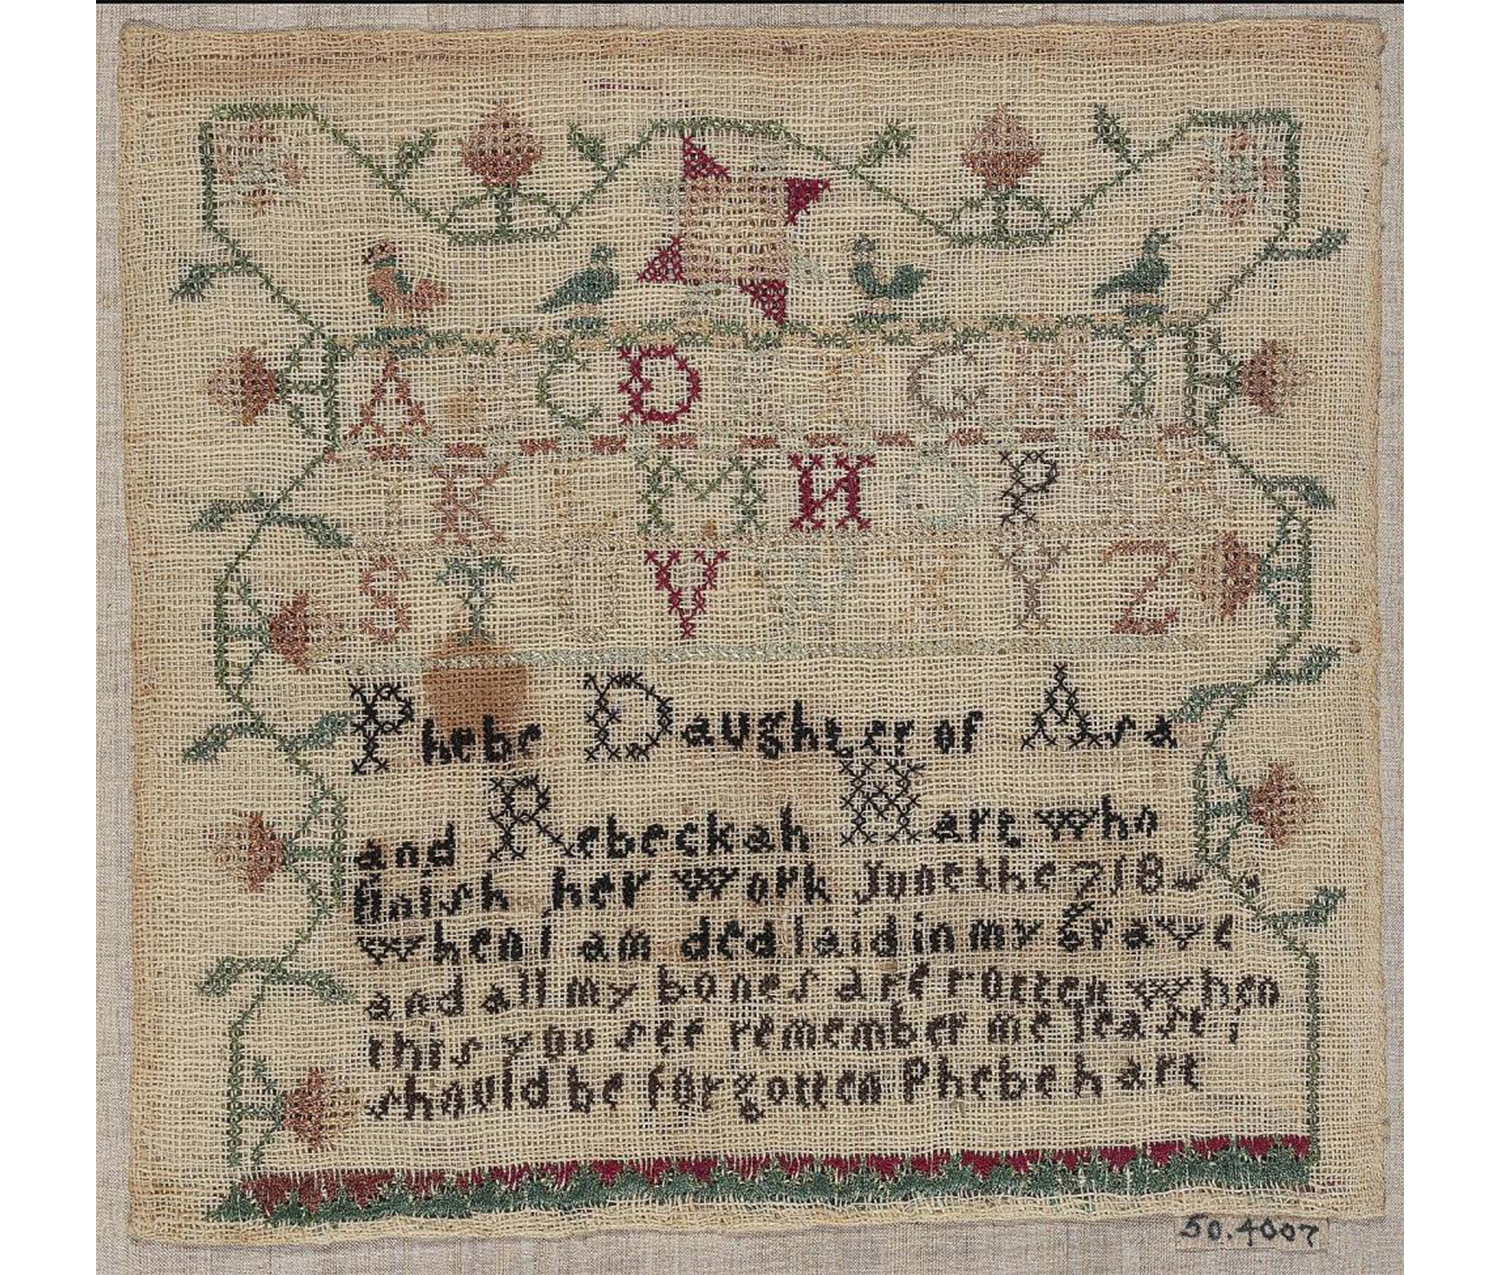 A B C D E F G H I
I K L M N O P Q R
S T U V W X Y Z
Phebe Daughter of Asa
and Rebeckah Hart who
finish her work June the 7 18
when I am ded laid in my Grave
and all my bones are rotten when
this you see remember me least i
should be forgotten Phebe hart
50.4007